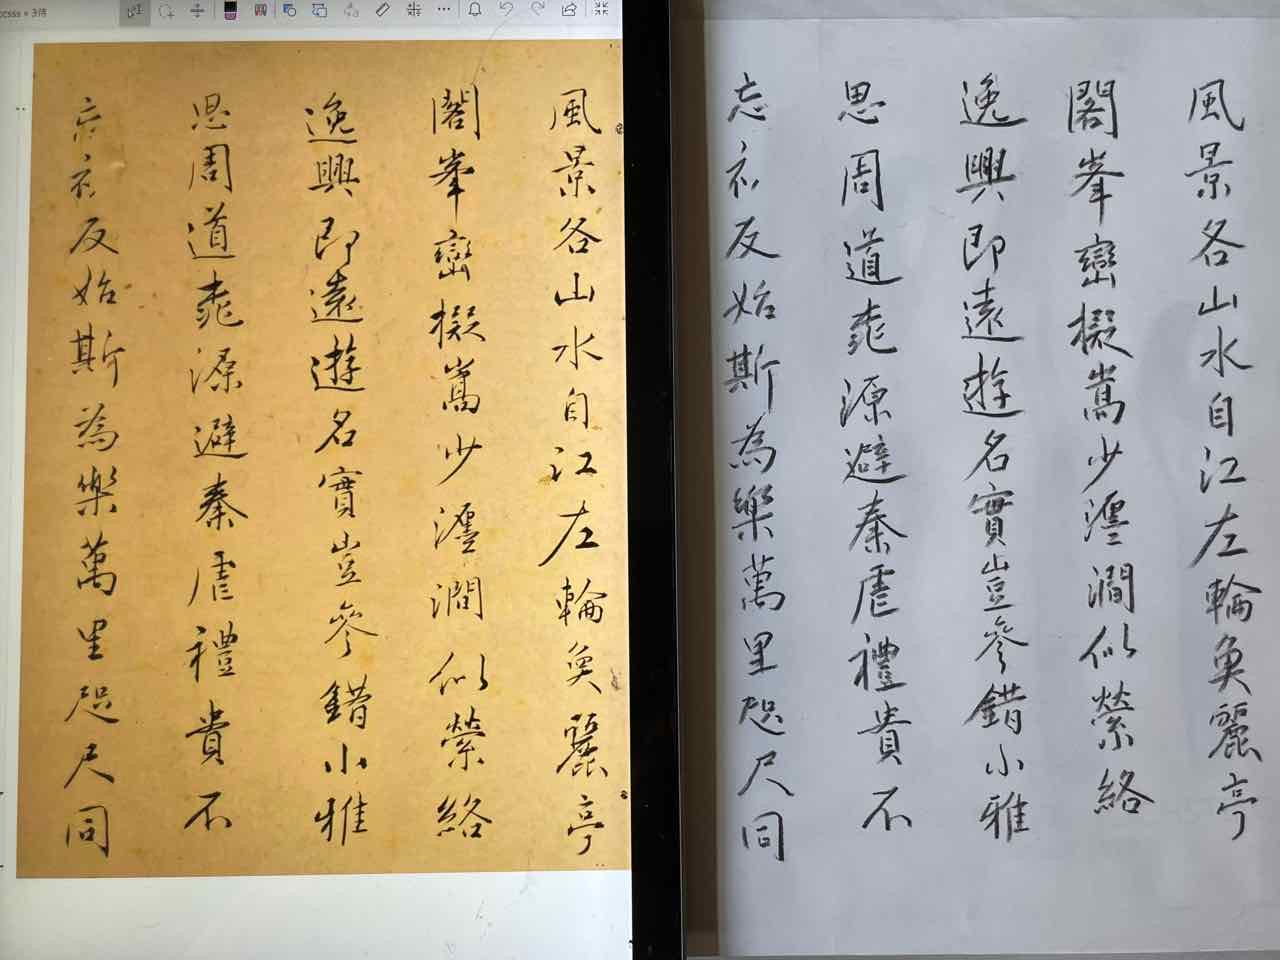 ccsss
风景各山水自江左輪奐麗亭
閣峯巒擬嵩少瀍澗似縈絡
逸興即遠遊名實豈參錯小雅
思周道桃源避秦虐禮貴不
忘衣反始斯為樂萬里咫尺同
風景各山水自江左輪奐麗亭
閣峯巒擬嵩少瀍澗似縈絡
逸興即遠遊名實豈參錯小雅
思周道桃源避秦虐禮貴不
忘衣反始斯為樂萬里咫尺同